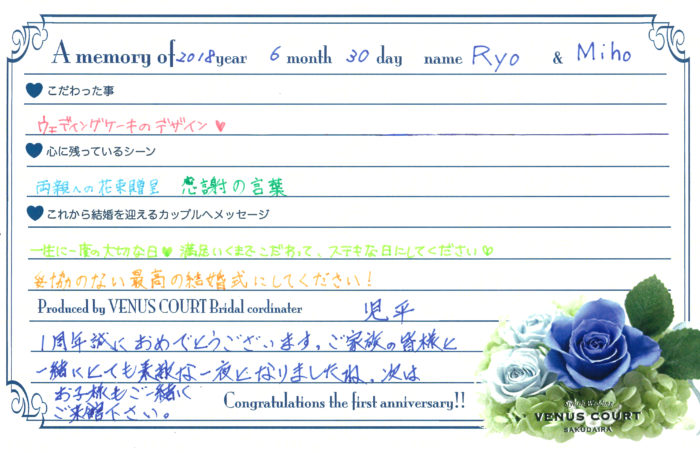 A memory of 2018 year 6 month 30 day name Ryo & Miho
こだわった事
ウェディングケーキのデザイン♥
心に残っているシーン
両親への花束贈呈 感謝の言葉
これから結婚を迎えるカップルへメッセージ
一生に一度の大切な日♥満足いくまでこだわって、ステキな日にしてください♡
妥協のない最高の結婚式にしてください!
Produced by VENUS COURT Bridal cordinater 児平
1周年誠におめでとうございます。ご家族の皆様と
一緒にとても素敵な一夜となりましたね。次は
お子様もご一緒に
ご来館下さい。
Congratulations the first anniversary!!
VENUS COURT
SAKUDAIRA